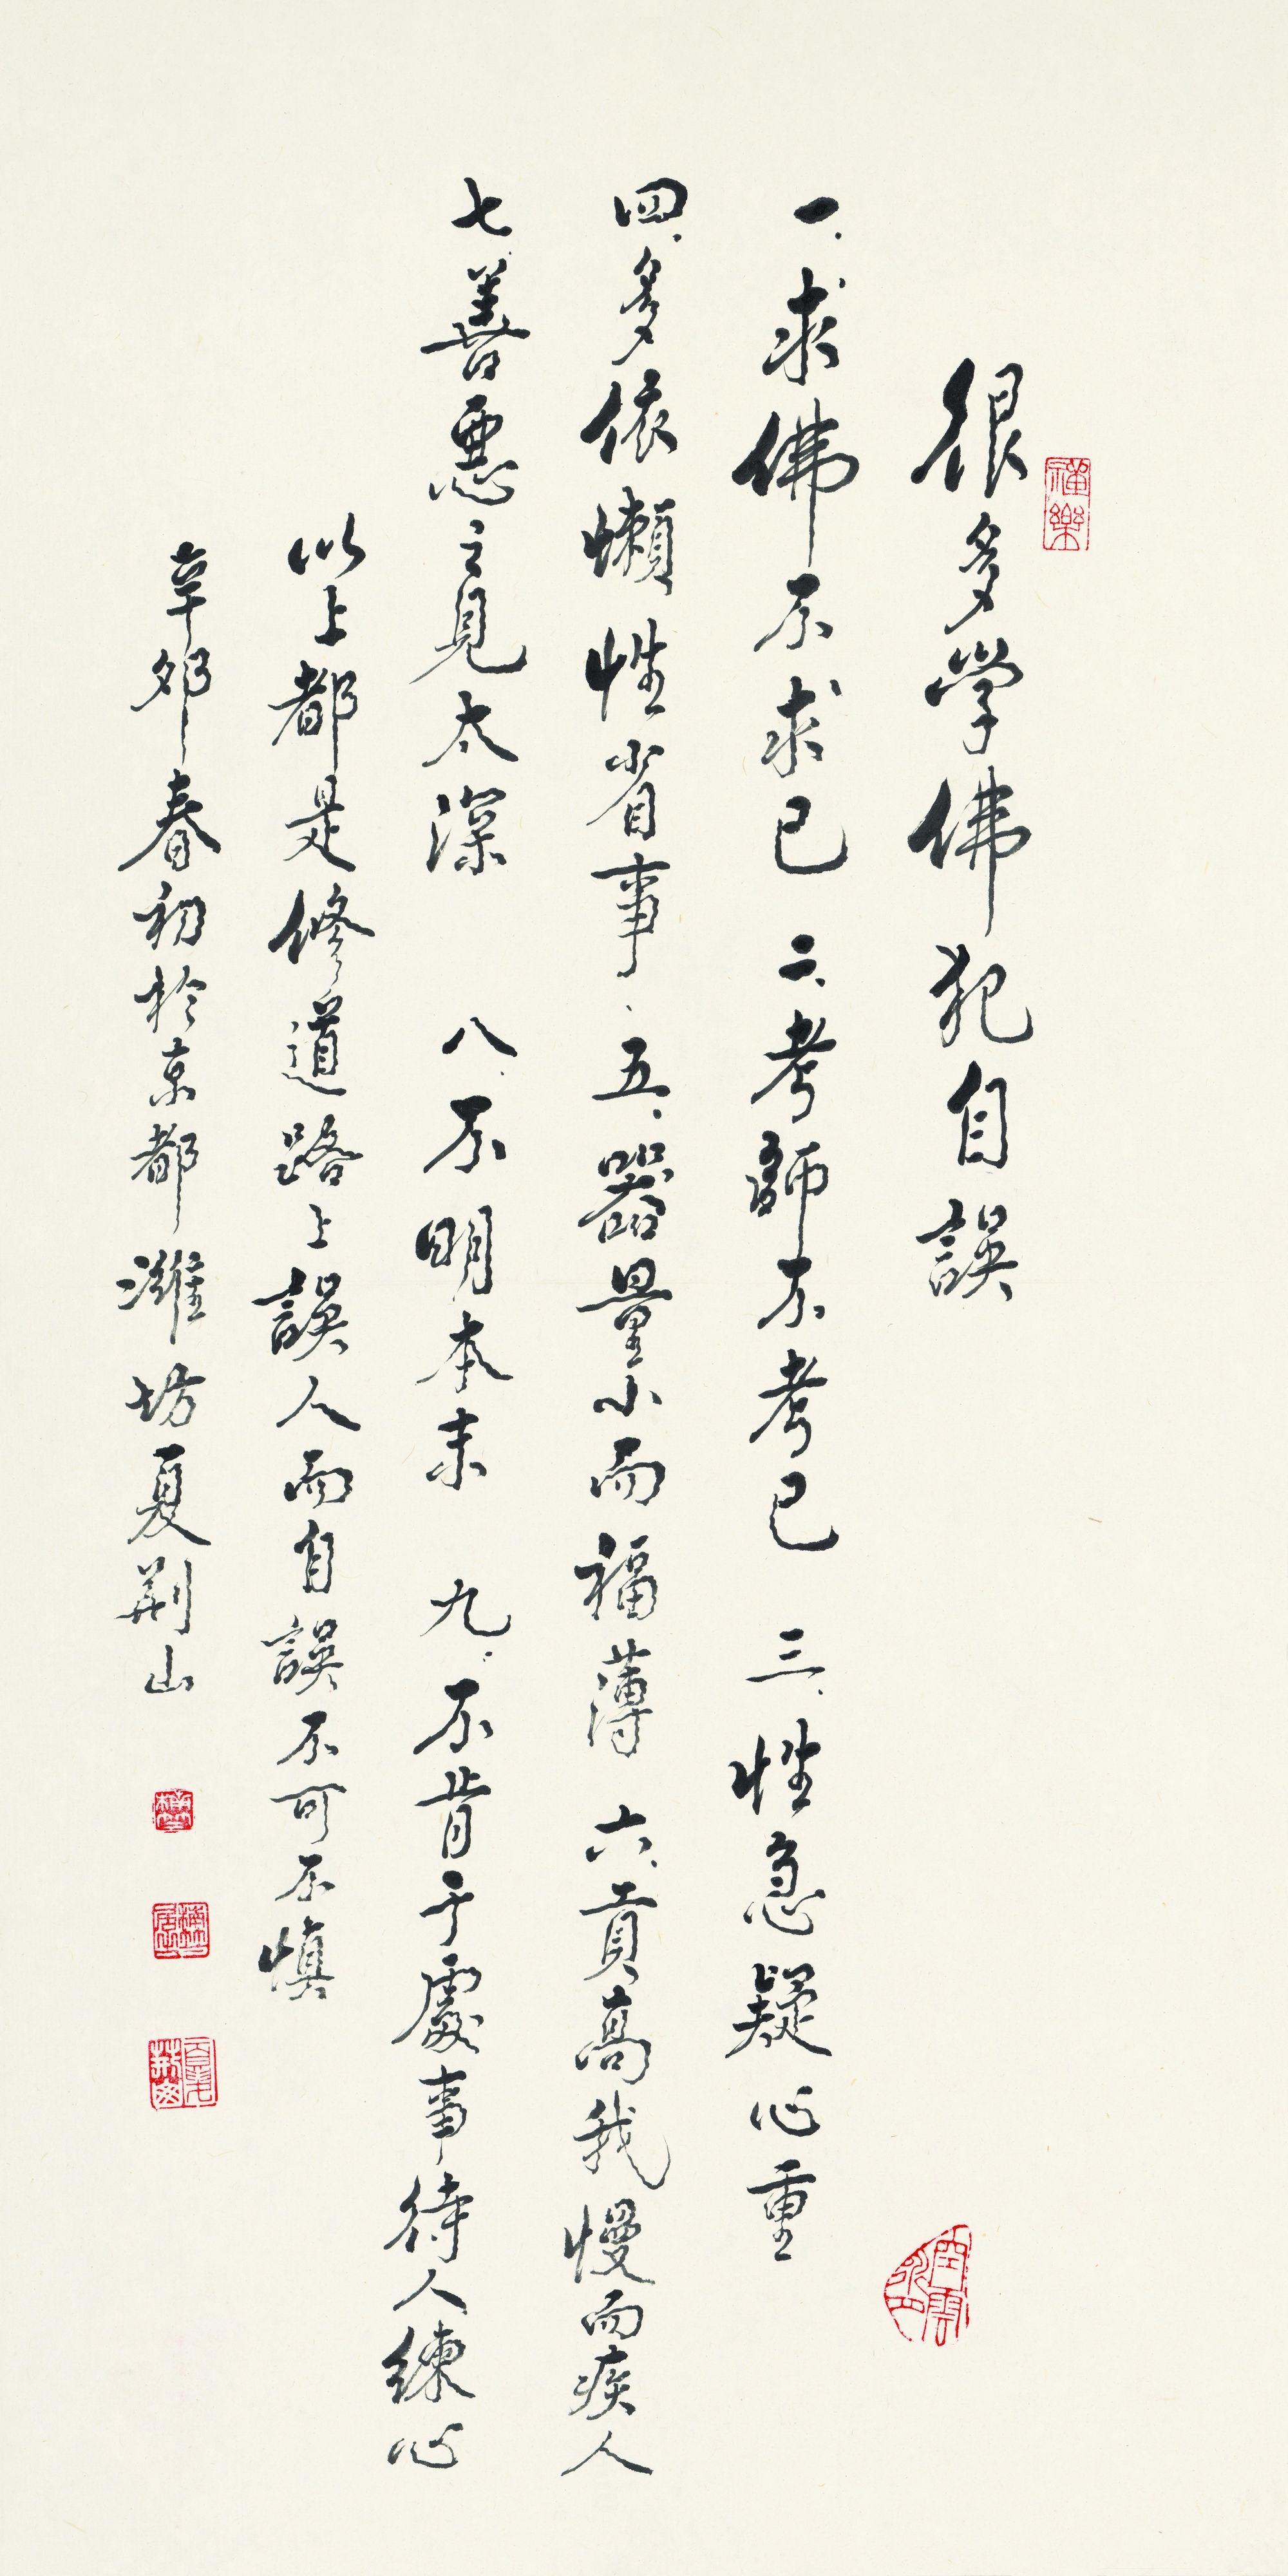 很多学佛犯自誤
一、求佛不求己 二、考師不考己 三、性急疑心重
四、多依懶性省事、五、器量小而福薄 六、貢高我慢而疾人
七、善惡之見太深 八、不明本末 九、不肯于處事待人練心
以上都是修道路上誤人而自誤不可不慎
辛卯春初於京都濰坊夏荆山
禪樂